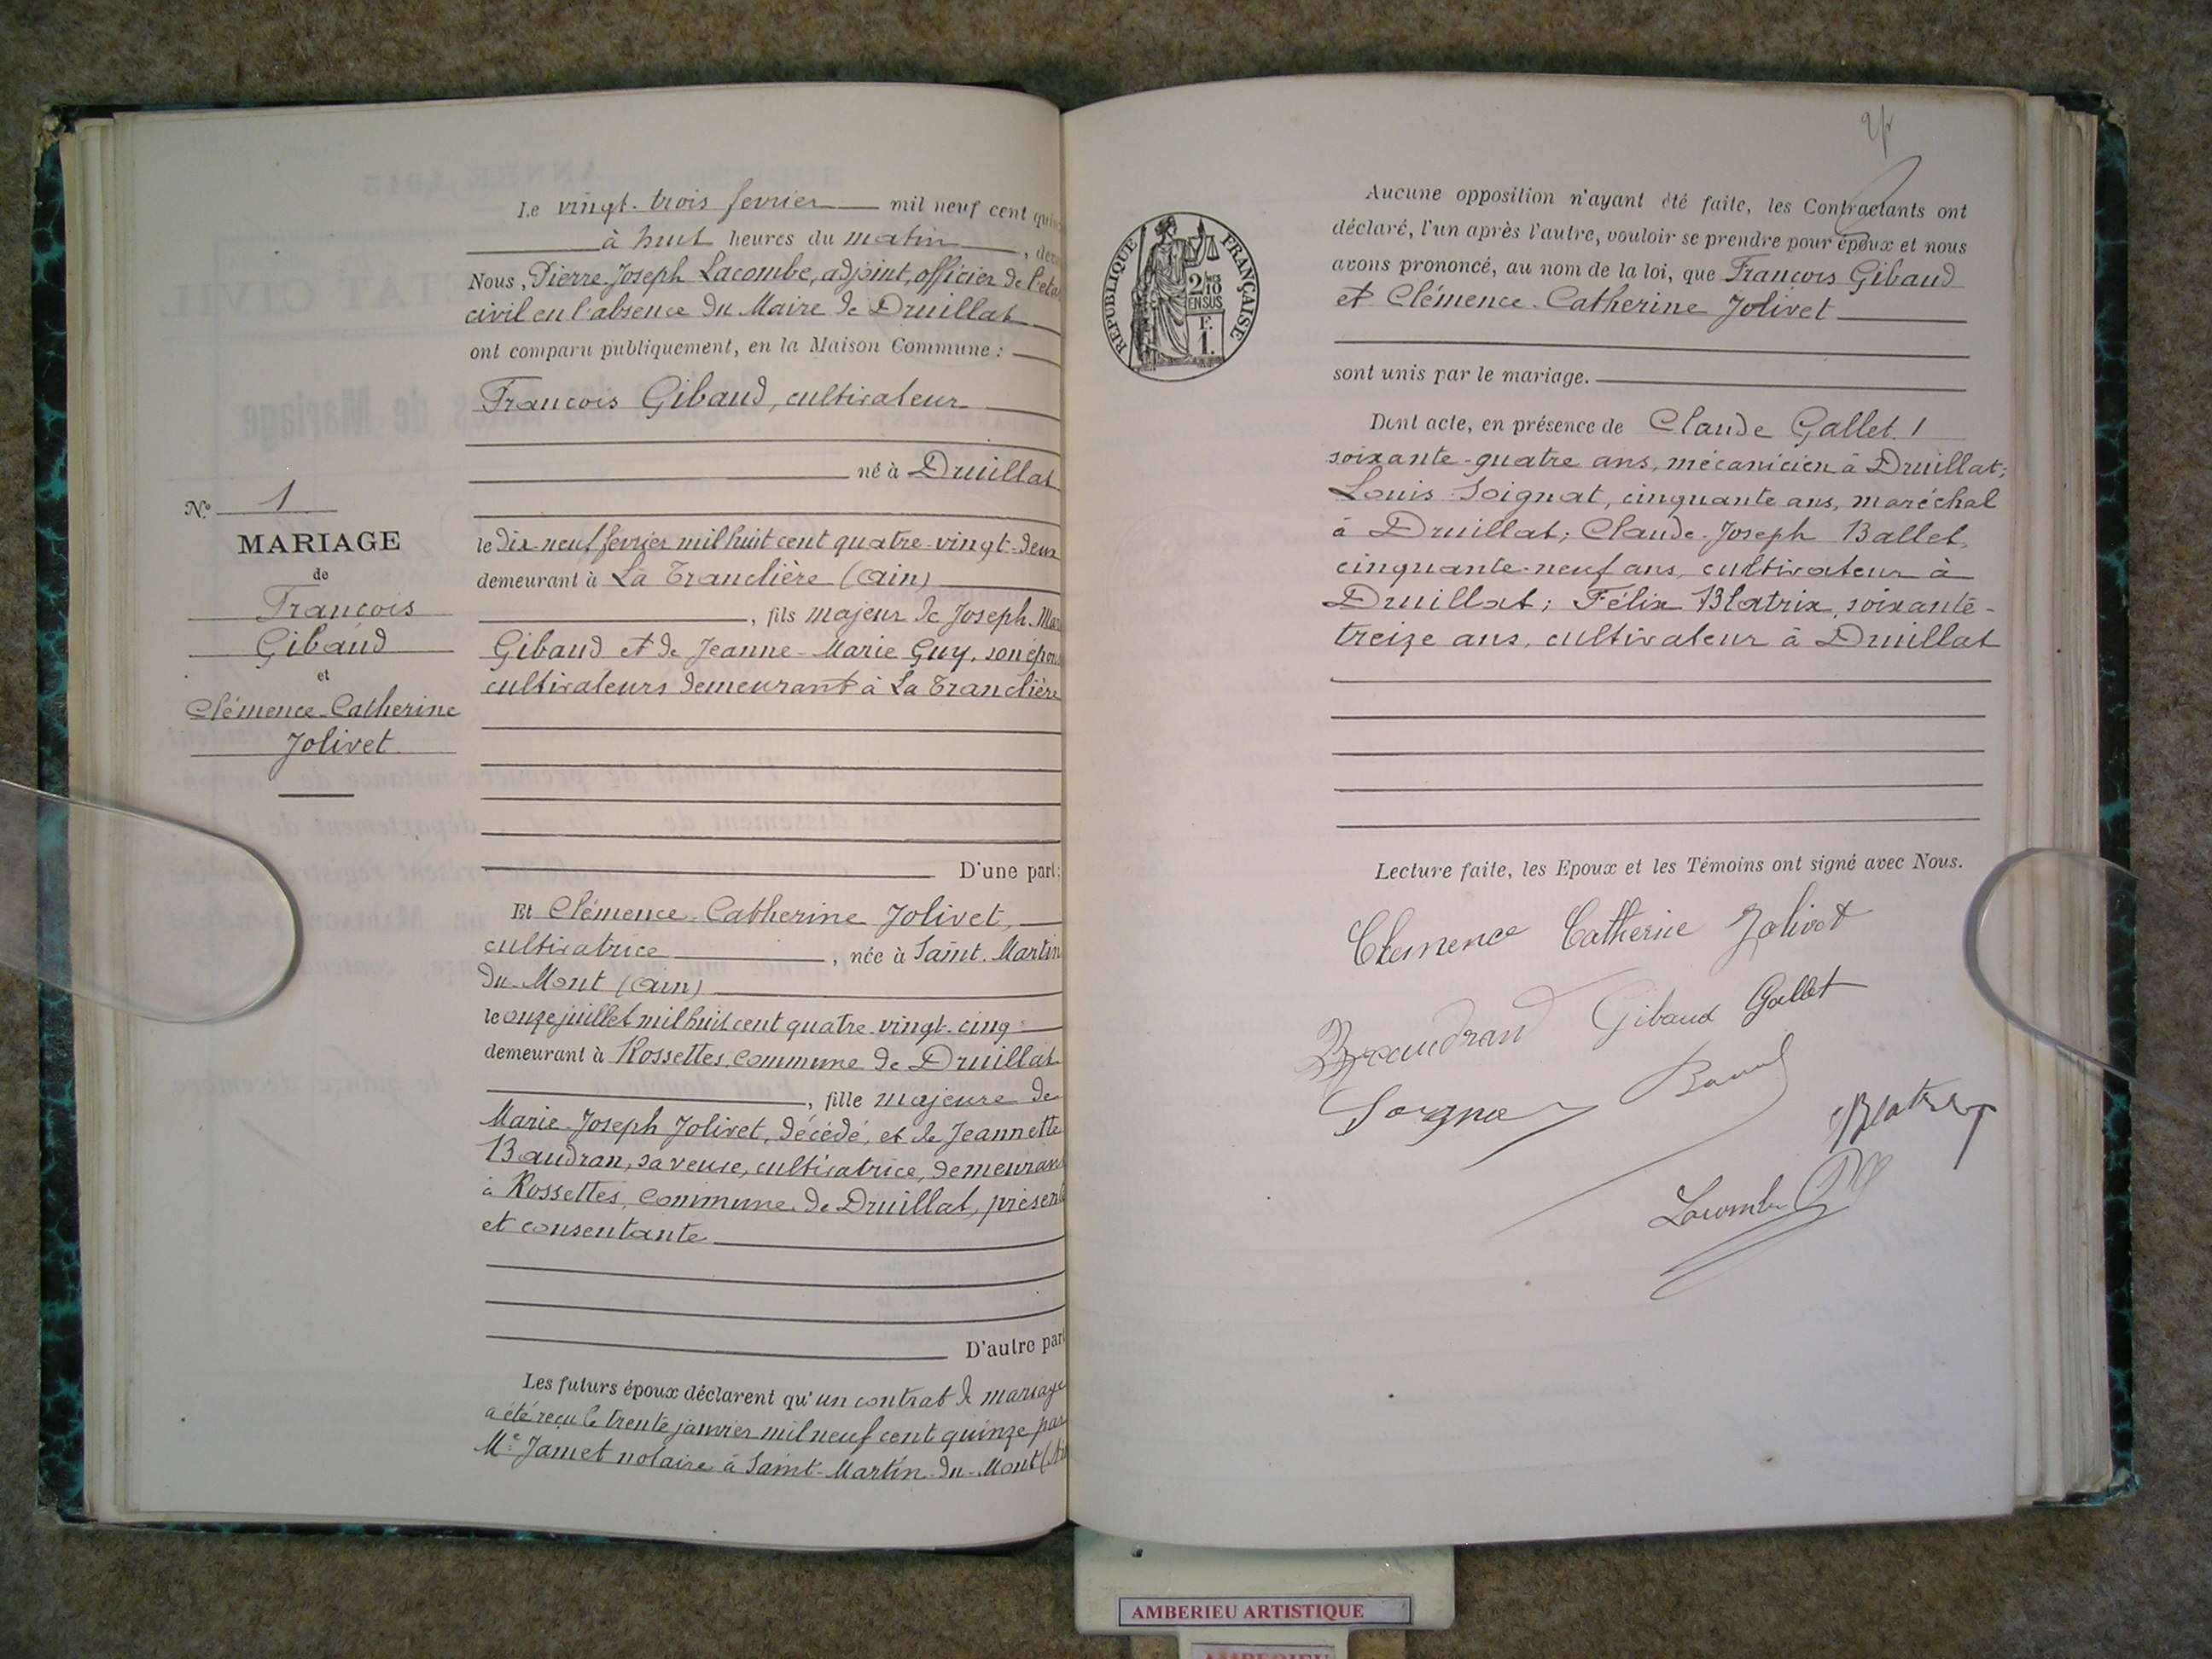 Le vingt-trois fevrier mil neuf cent
à huit heures du matin,
Nous, Pierre-Joseph Lacombe, adjoint, officier de l'eta
civil en l'absence du Maire de Druillat
ont comparu publiquement, en la Maison Commune :
François Gibaud, cultivateur
né à Druillat
le dix-neuf fevrier mil huit cent quatre-vingt-deux
demeurant à La Tranclière (Ain)
, fils majeur de Joseph-Mar
Gibaud et de Jeanne-Marie Guy, son épous
cultivateurs demeurant à La Tranclière
D'une part:
Et Clémence-Catherine Jolivet,
cultivatrice, née à Saint-Martin
du-Mont (Ain)
le onze juillet mil huit cent quatre-vingt-cinq
demeurant à Rossettes, commune de Druillat
, fille majeure de
Marie-Joseph Jolivet, décédé, et de Jeannette
Baudran, sa veuve, cultivatrice, demeurant
à Rossettes, commune de Druillat, présente
et consentante
D'autre part
Les futurs époux déclarent qu'un contrat de mariage
a été reçu le trente janvier mil neuf cent quinze par
Me Jamet notaire à Saint-Martin-du-Mont (Ain
No 1
MARIAGE
de
François
Gibaud
et
Clémence-Catherine
Jolivet
RÉPUBLIQUE FRANÇAISE
2/10
EN SUS
F.
1.
Aucune opposition n'ayant été faite, les Contractants ont
déclaré, l'un après l'autre, vouloir se prendre pour époux et nous
avons prononcé, au nom de la loi, que François Gibaud
et Clémence-Catherine Jolivet
sont unis par le mariage.
Dont acte, en présence de Claude Gallet
soixante-quatre ans, mécanicien à Druillat;
Louis Soignat, cinquante ans, maréchal
à Druillat; Claude-Joseph Ballet,
cinquante-neuf ans, cultivateur à
Druillat; Félix Blatrix, soixante-
treize ans, cultivateur à Druillat
Lecture faite, les Epoux et les Témoins ont signé avec Nous.
Clemence Catherine Jolivet
Gibaud Gallet
Blatrix
Lacombe
AMBERIEU ARTISTIQUE
AMBERIEU